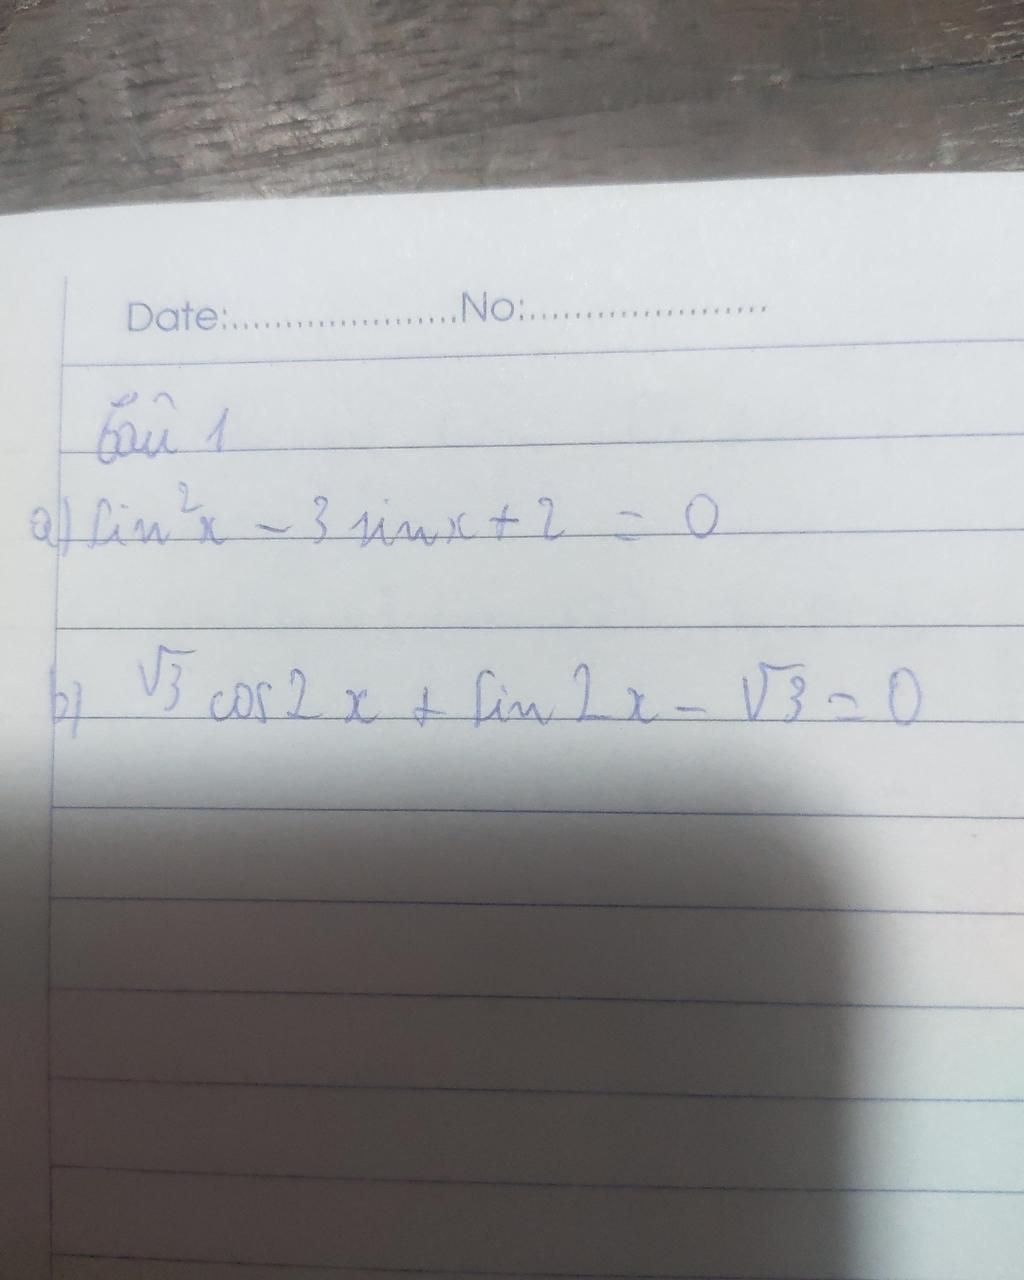 Date:......................No:......................
Câu 1
a) sin²x - 3 sinx + 2 = 0
b) √3 cos2x + sin2x - √3 = 0